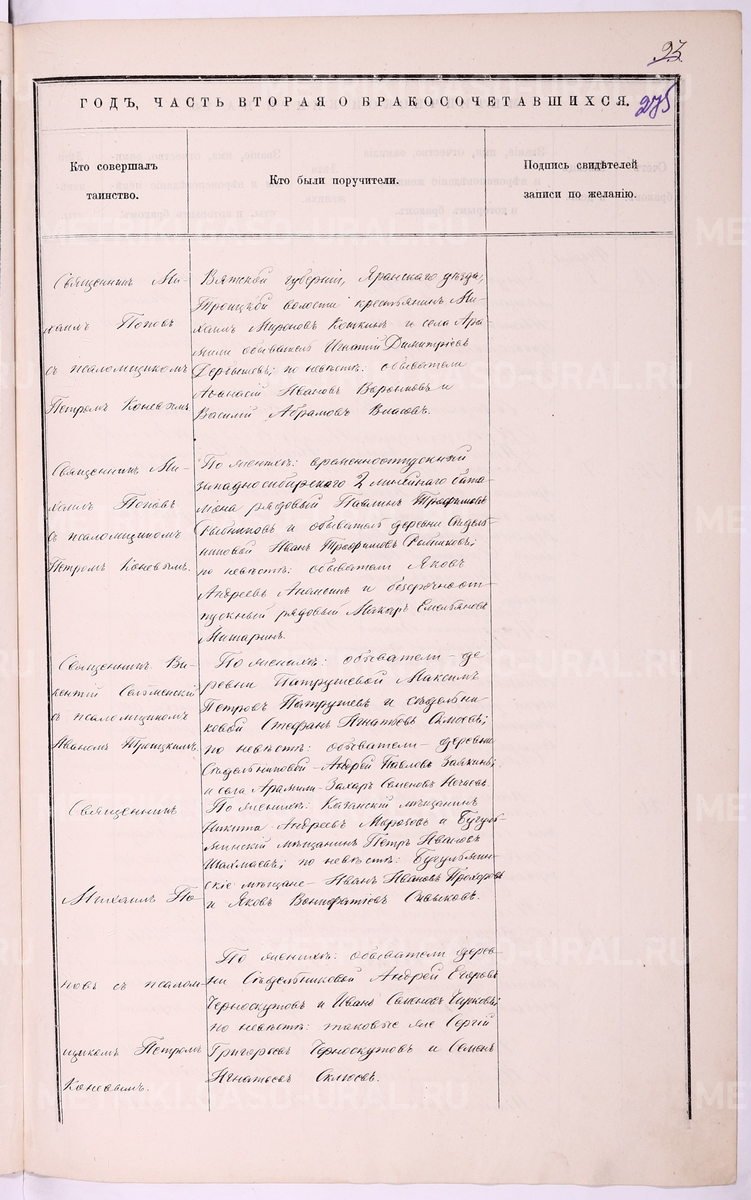 93.
275
ГОДЪ, ЧАСТЬ ВТОРАЯ О БРАКОСОЧЕТАВШИХСЯ.
Кто совершалъ
таинство.
Кто были поручители.
Подпись свидѣтелей
записи по желанію.
Священникъ Ми-
хаилъ Поповъ
съ псаломщикомъ
Петромъ Коневымъ
Вятской губерніи, Яранскаго уѣзда,
Троицкой волости крестьянинъ Ми-
хаилъ Мироновъ Кожинъ и села Ара-
мили обыватель Игнатій Димитріевъ
по невѣстѣ: обыватели
Аѳанасій Ивановъ и
Василій Абрамовъ Власовъ.
Священникъ Ми-
хаилъ Поповъ
съ псаломщикомъ
Петромъ Коневымъ.
По женихѣ: временноотпускный
западносибирскаго 2 линейнаго бата-
ліона рядовый Павлинъ Трофимовъ
Рыбниковъ и обыватель деревни Сѣдель-
никовой Иванъ Трофимовъ Рыбниковъ;
по невѣстѣ: обыватели Яковъ
Андреевъ и безсрочноот-
пускный рядовый Макаръ Емельяновъ
Мишаринъ.
Священникъ Ви-
кентій
съ псаломщикомъ
Иваномъ Троицкимъ.
По женихѣ: обыватели – де-
ревни Патрушевой Максимъ
Петровъ Патрушевъ и Сѣдельни-
ковой Стефанъ Игнатьевъ
по невѣстѣ: обыватели – деревни
Сѣдельниковой – Андрей Павловъ
и села Арамили – Захаръ Семеновъ
Священникъ
Михаилъ По-
повъ съ псалом-
щикомъ Петромъ
Коневымъ.
По женихѣ: Казанскій мѣщанинъ
Никита Андреевъ Морозовъ и Бугуль-
минскій мѣщанинъ Петръ Ивановъ
по невѣстѣ: Бугульмин-
скіе мѣщане – Иванъ Ивановъ Прохоровъ
и Яковъ Вонифатьевъ
По женихѣ: обыватели дерев-
ни Сѣдельниковой Андрей Егоровъ
Черноскутовъ и Иванъ Семеновъ
по невѣстѣ: таковые же Сергій
Григорьевъ Черноскутовъ и Семенъ
Игнатьевъ